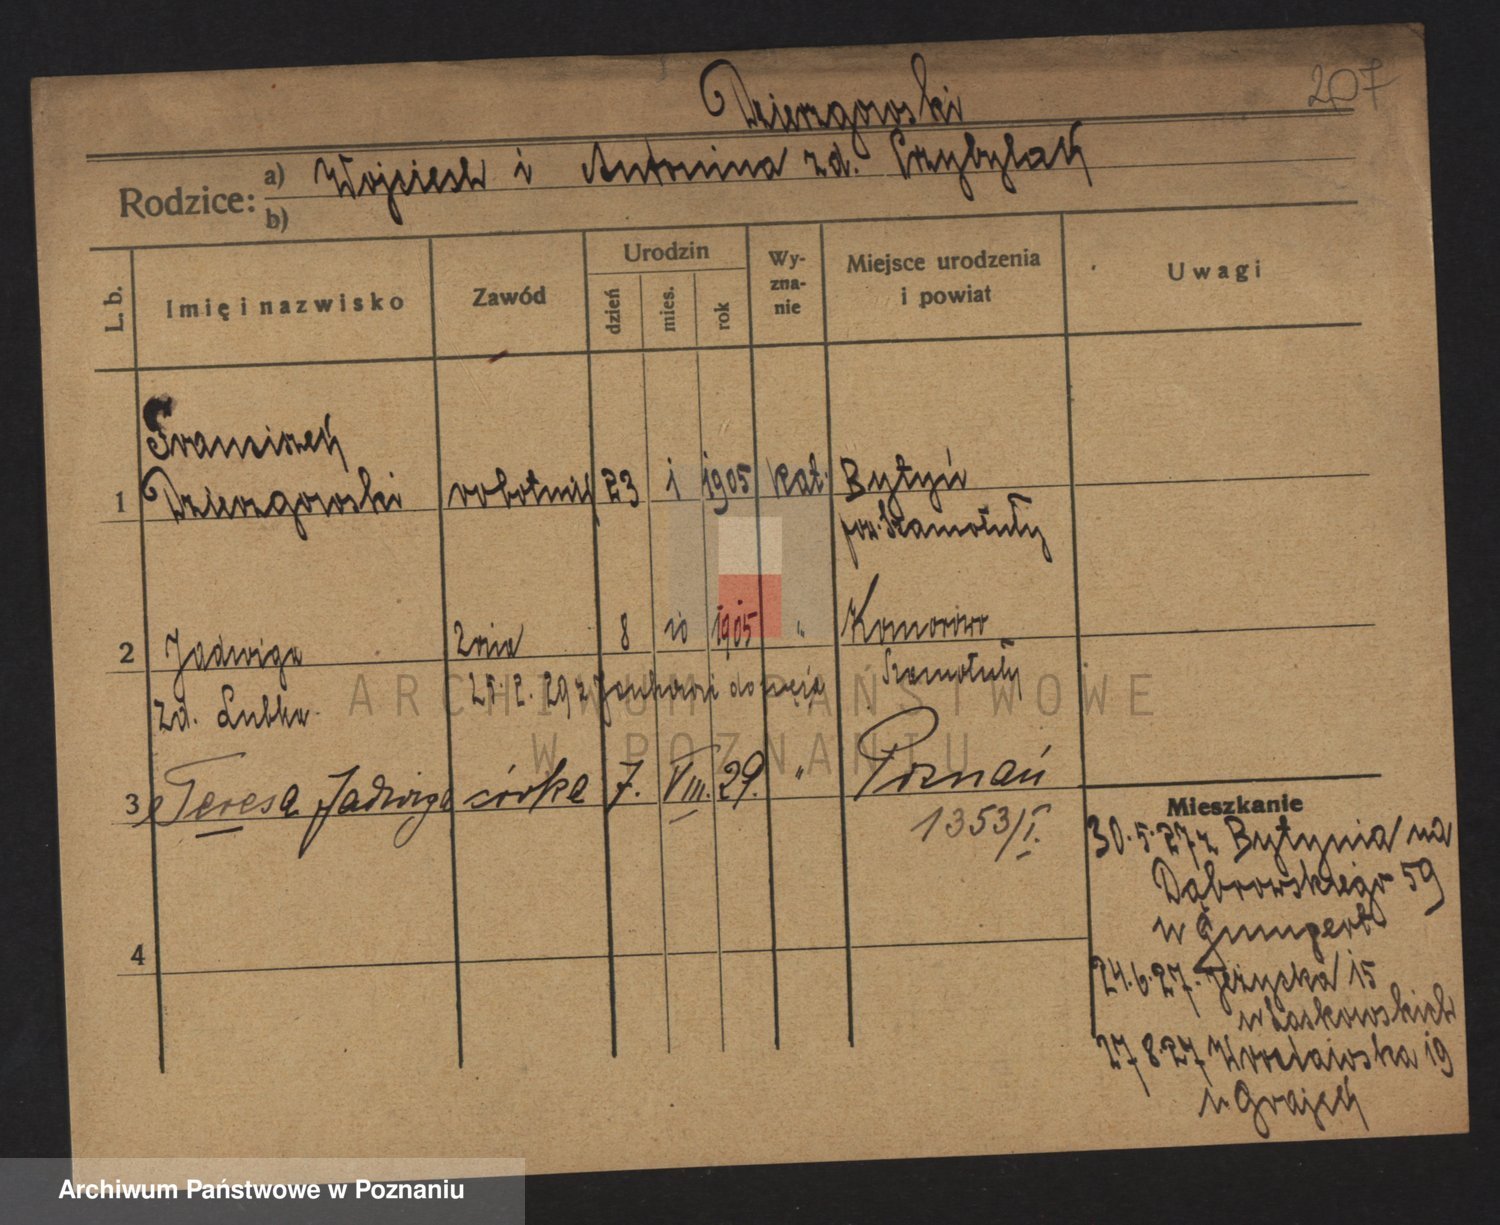 207
Dzierzgowski
Rodzice:
a) Wojciech i Antonina zd. Przybylak
b)
L. b.
Imię i nazwisko
Zawód
Urodzin
dzień
mies.
rok
Wy-
zna-
nie
Miejsce urodzenia
i powiat
Uwagi
Franciszek
1 Dzierzgowski robotnik 23 1 1905 kat. Bytyń
pow. Szamotuły
2 Jadwiga żona 8 10 1905 " Komorowo
zd. Lubka 25.12.29 z do męża Szamotuły
3 Teresa Jadwiga córka 7. VIII. 29. " Poznań
1353/I.
4
Mieszkanie
30.5.27 z Bytynia na
Dąbrowskiego 59
u Gumpert
24.6.27. Jeżycka 15
u Laskowskich
27 8.27 Wrocławska 19
u Grajek
ARCHIWUM PAŃSTWOWE
W POZNANIU
Archiwum Państwowe w Poznaniu